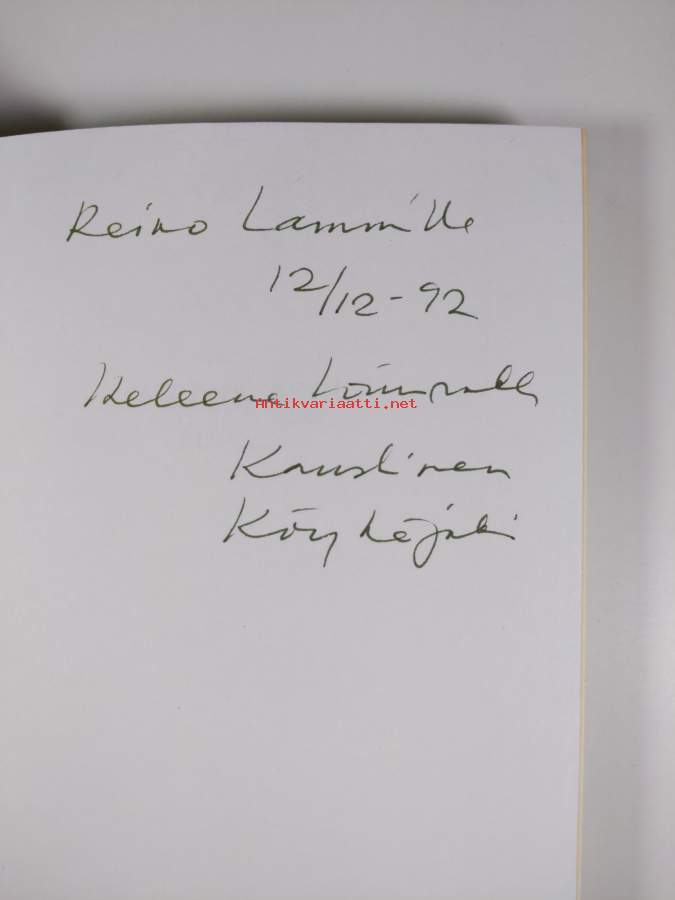 Reino Lammille
12/12-92
Heleena
antikvariaatti.net
Kaustinen
Köyhäjoki